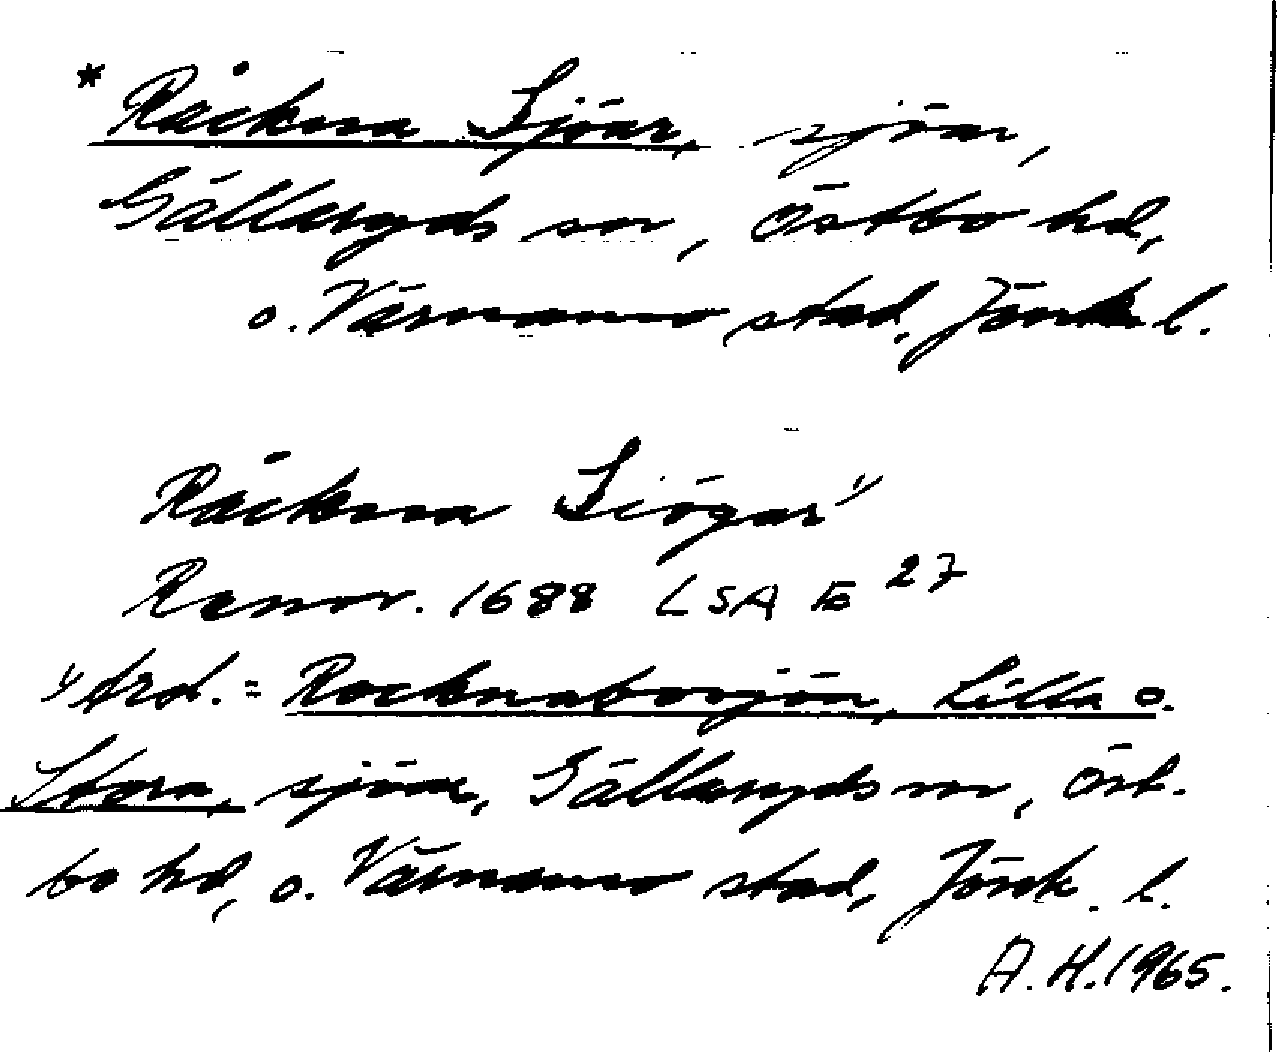 * Råckna Sjöar, sjöar,
Gällaryds sn, Östbo hd,
o. Värnamo stad. Jönk. l.
Råckna Siögar"
Rannr. 1688 LSA E 27
"trol. = Rocknabosjön, Lilla o.
Stora, sjöar, Gällaryds sn, Öst-
bo hd, o. Värnamo stad, Jönk. l.
A.H. 1965.